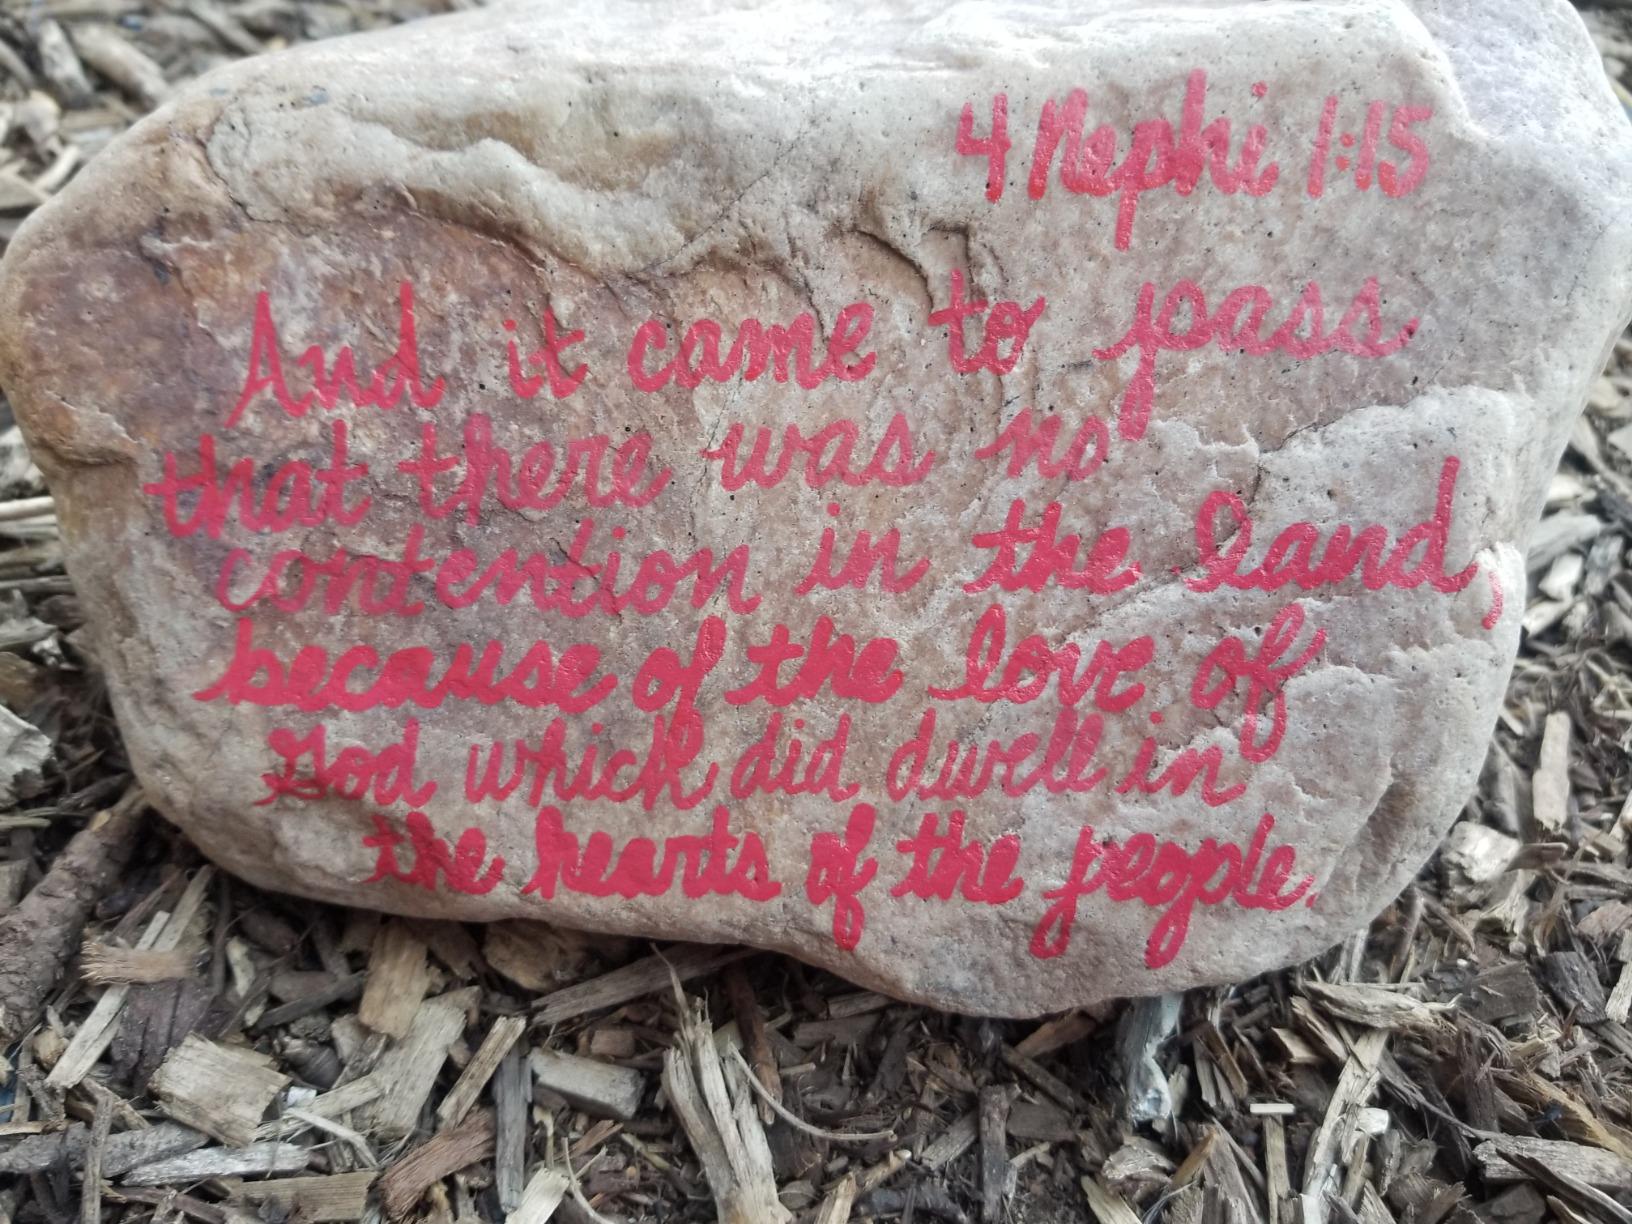 4 Nephi 1:15
And it came to pass
that there was no
contention in the land,
because of the love of
God which did dwell in
the hearts of the people.